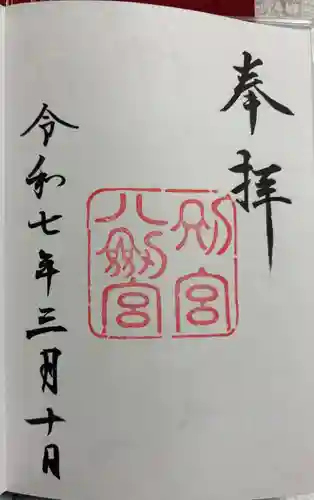 奉拝
別宮
八剣宮
令和七年三月十日